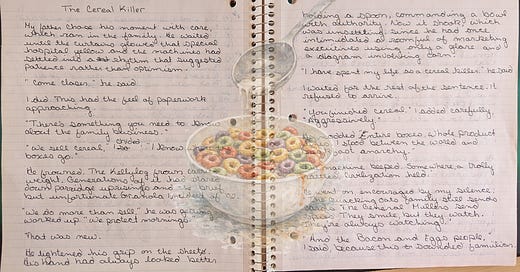 The Cereal Killer
My father chose his moment with care,
which ran in the family. He waited
until the curtains glowed that special
hospital yellow and the machines had
settled into a rhythm that suggested
patience rather than optimism.
"Come closer." he said.
I did. This had the feel of paperwork
approaching.
"There's something you need to know
about the family business."
"We sell cereal," I said. "I know
boxes go."
He frowned. The Kellylog frown carried
weight. Generations of it had
down porridge uprisings and the brief
but unfortunate Granola
"We do more than sell." he was getting
worked up. "We protect mornings."
That was new.
He tightened his grip on the sheets.
His hand had always looked better
holding a spoon, commanding a bowl
with authority. Now it shook, which
was unsettling, since he had once
intimidated a roomful of marketing
executives using only a glare and
a diagram involving corn.
"I have spent my life as a cereal killer." he said
I waited for the rest of the sentence. It
refused to arrive.
"You finished cereal." I added carefully.
Aggressively."
Entire boxes. Whole product
I stood between the world and
anarchy."
machine beeped. Somewhere a trolly
civilization held.
went on, encouraged by my silence.
Oats family still sends
The General Mills
They smile, but they watch.
They're always watching."
"And the Bacon and Eggs people,"
I said, because this to families.